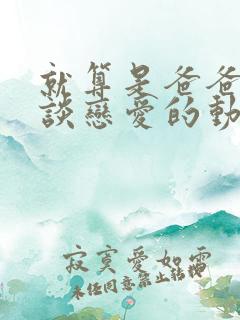 就算是爸爸
談戀愛的動
寂寞愛如雷
未經同意禁止轉載